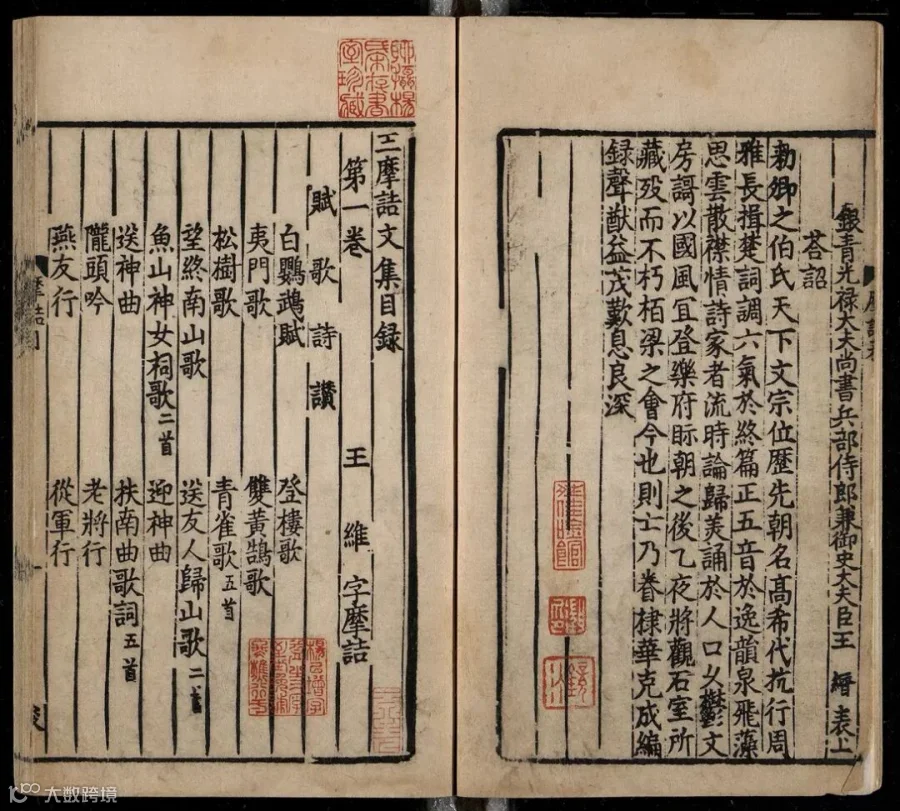 銀青光禄大夫尚書兵部侍郎兼御史大夫臣王縉表上
荅詔
勑卿之伯氏天下文宗位歷先朝名髙希代抗行周
雅長揖楚詞調六氣於終篇正五音於逸韻泉飛藻
思雲散襟情詩家者流時論歸羙誦於人口乆欝文
房謌以國風冝登樂府眎朝之後乙夜將觀石室所
藏殁而不朽栢梁之會今也則士乃眷棣華克成編
録聲猷益茂歎息良深
王摩詰文集目録
第一卷 王維字摩詰
賦 歌 詩 讃
白鸚鵡賦 登樓歌
夷門歌 雙黃鵠歌
松樹歌 青雀歌五首
望終南山歌 送友人歸山歌二首
魚山神女祠歌二首 迎神曲
送神曲 扶南曲歌詞五首
隴頭吟 老將行
燕友行 從軍行
大数跨境